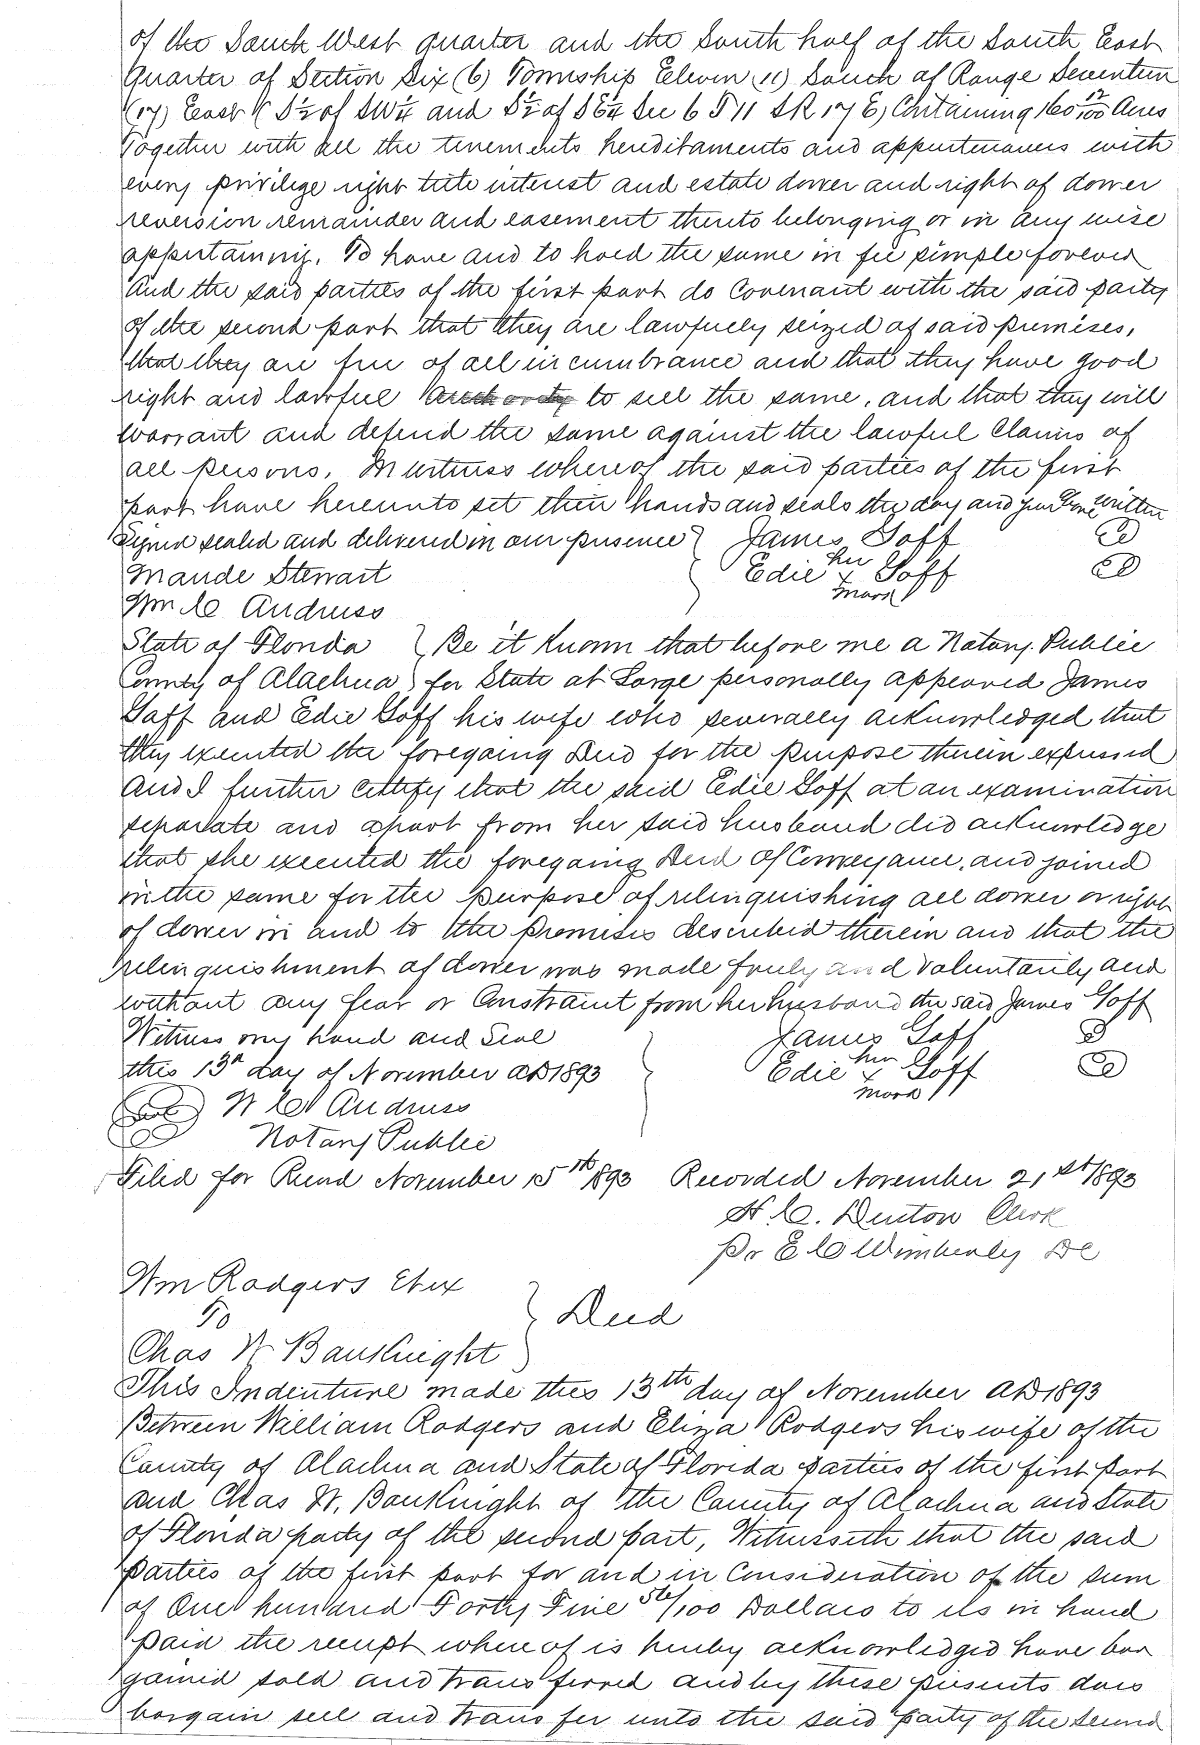 of the South West quarter and the South half of the South East
Quarter of Section Six (6) Township Eleven (11) South of Range Seventeen
(17) East ( S½ of SW¼ and S½ of SE¼ Sec 6 T 11 S R 17 E) Containing 160 12/100 Acres
Together with all the tenements hereditaments and appurtenances with
every privilege right title interest and estate dower and right of dower
reversion remainder and easement thereto belonging or in any wise
appertaining. To have and to hold the same in fee simple forever
And the said parties of the first part do Covenant with the said party
of the second part that they are lawfully seized of said premises,
that they are free of all incumbrance and that they have good
right and lawful authority to sell the same, and that they will
warrant and defend the same against the lawful Claims of
all persons. In witness whereof the said parties of the first
part have hereunto set their hands and seals the day and year above written
Signed sealed and delivered in our presence } James Goff
Maude Stewart Edie her x mark Goff
Wm C Andruss
State of Florida } Be it Known that before me a Notary Public
County of Alachua } for State at Large personally appeared James
Goff and Edie Goff his wife who severally acknowledged that
they executed the foregoing Deed for the purpose therein expressed
And I further certify that the said Edie Goff at an examination
separate and apart from her said husband did acknowledge
that she executed the foregoing Deed of Conveyance, and joined
in the same for the purpose of relinquishing all dower or right
of dower in and to the premises described therein and that the
relinquishment of dower was made freely and voluntarily and
without any fear or Constraint from her husband the said James Goff
Witness my hand and Seal James Goff
this 13th day of November AD 1893 Edie her x mark Goff
W C Andruss
Notary Public
Filed for Record November 15th 1893 Recorded November 21st 1893
H. C. Denton Clerk
Pr E C Wimberly DC
Wm Rodgers Et ux
To } Deed
Chas W BauKnight
This Indenture made this 13th day of November AD 1893
Between William Rodgers and Eliza Rodgers his wife of the
County of Alachua and State of Florida parties of the first part
and Chas W. BauKnight of the County of Alachua and State
of Florida party of the second part, Witnesseth that the said
parties of the first part for and in Consideration of the sum
of One hundred Forty Five 56/100 Dollars to us in hand
paid the receipt where of is hereby acknowledged have bar
gained sold and transferred and by these presents does
bargain sell and transfer unto the said party of the second